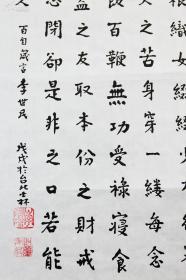 夫之苦身穿一縷每念
飯百鞭無功受祿寢食
益之友取本份之財戒
閉卻是非之口若能
百字箴言李世民
戊戌於台北士林